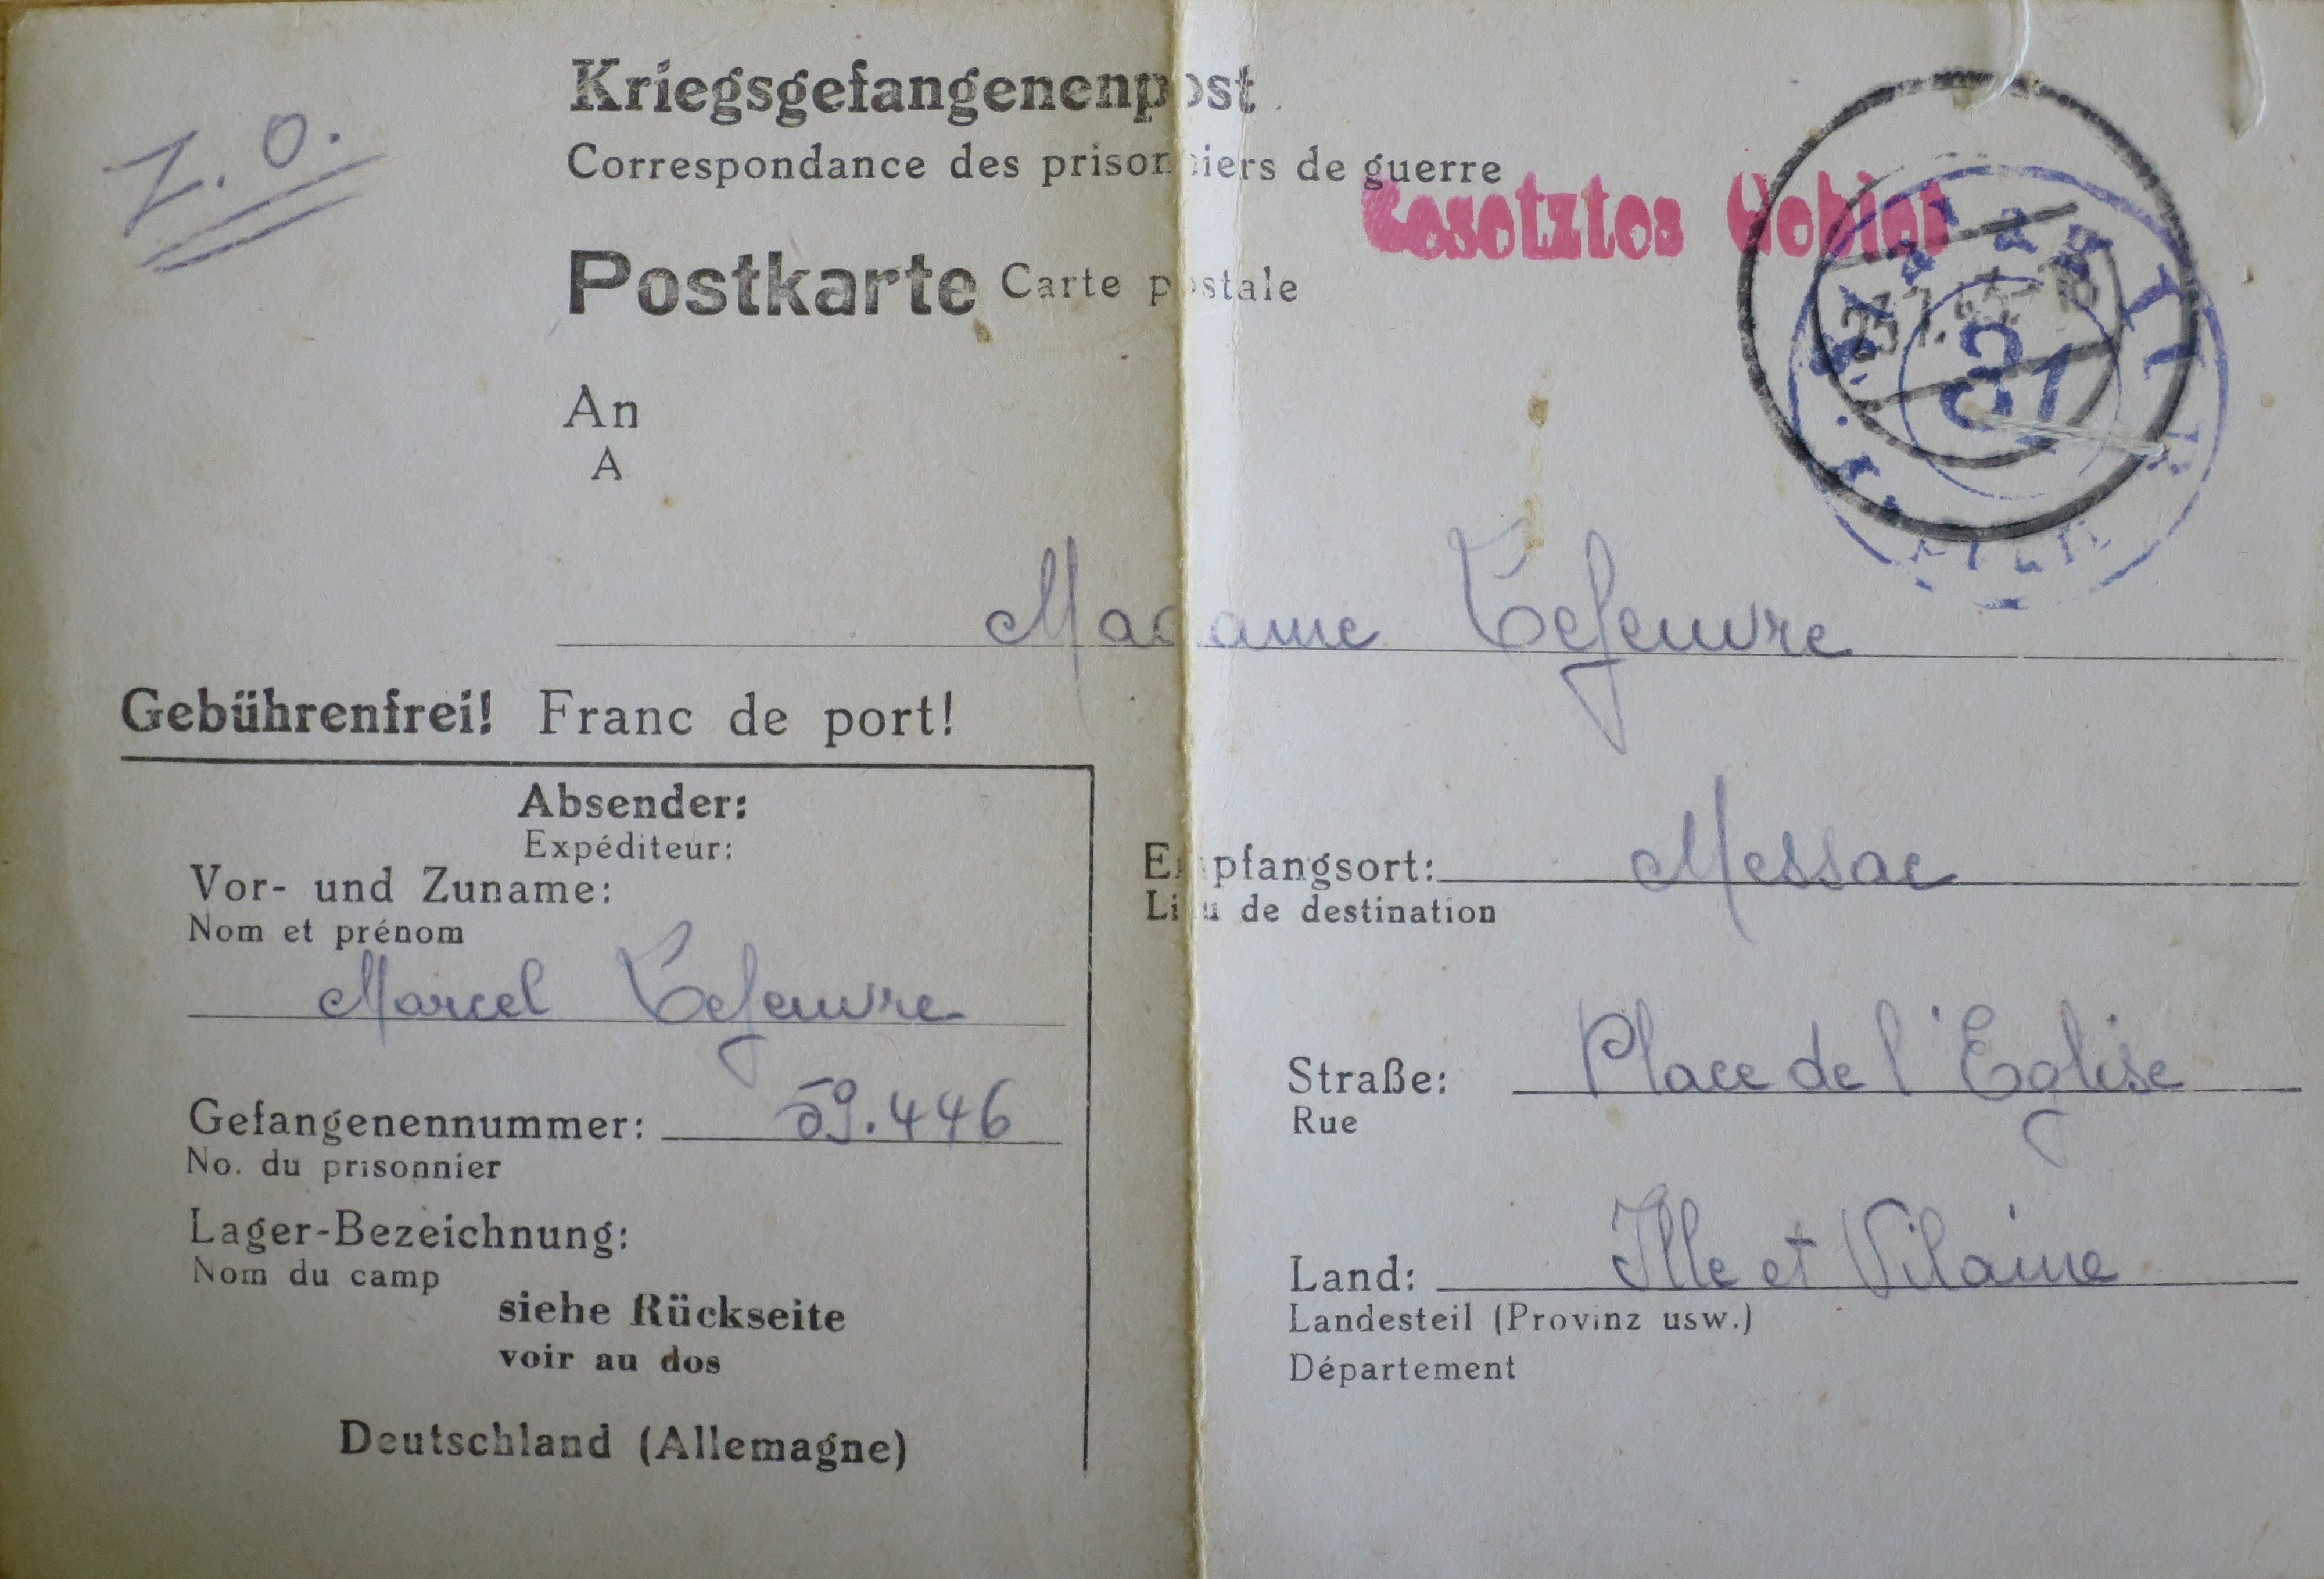 Z.O.
Kriegsgefangenenpost
Correspondance des prisonniers de guerre
Besetztes Gebiet
Postkarte Carte postale
31
An
A
Madame Lefeuvre
Gebührenfrei! Franc de port!
Absender:
Expéditeur:
Vor- und Zuname:
Nom et prénom
Marcel Lefeuvre
Gefangenennummer: 59.446
No. du prisonnier
Lager-Bezeichnung:
Nom du camp
siehe Rückseite
voir au dos
Deutschland (Allemagne)
Empfangsort: Messac
Lieu de destination
Straße: Place de l'Eglise
Rue
Land: Ille et Vilaine
Landesteil (Provinz usw.)
Département